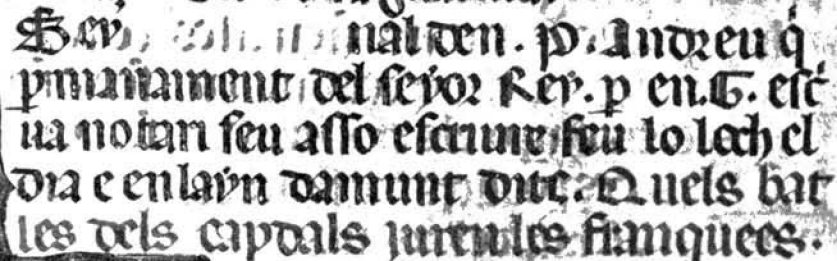 Sey nal den. P. Andreu q̇
p̱manament del seyor Rey. p̱ en. G. esc̃
ua notari feu asso escriure feu lo loch el
dia e en layn damunt dite. Quels bat
les dels capdals juren les franquees.